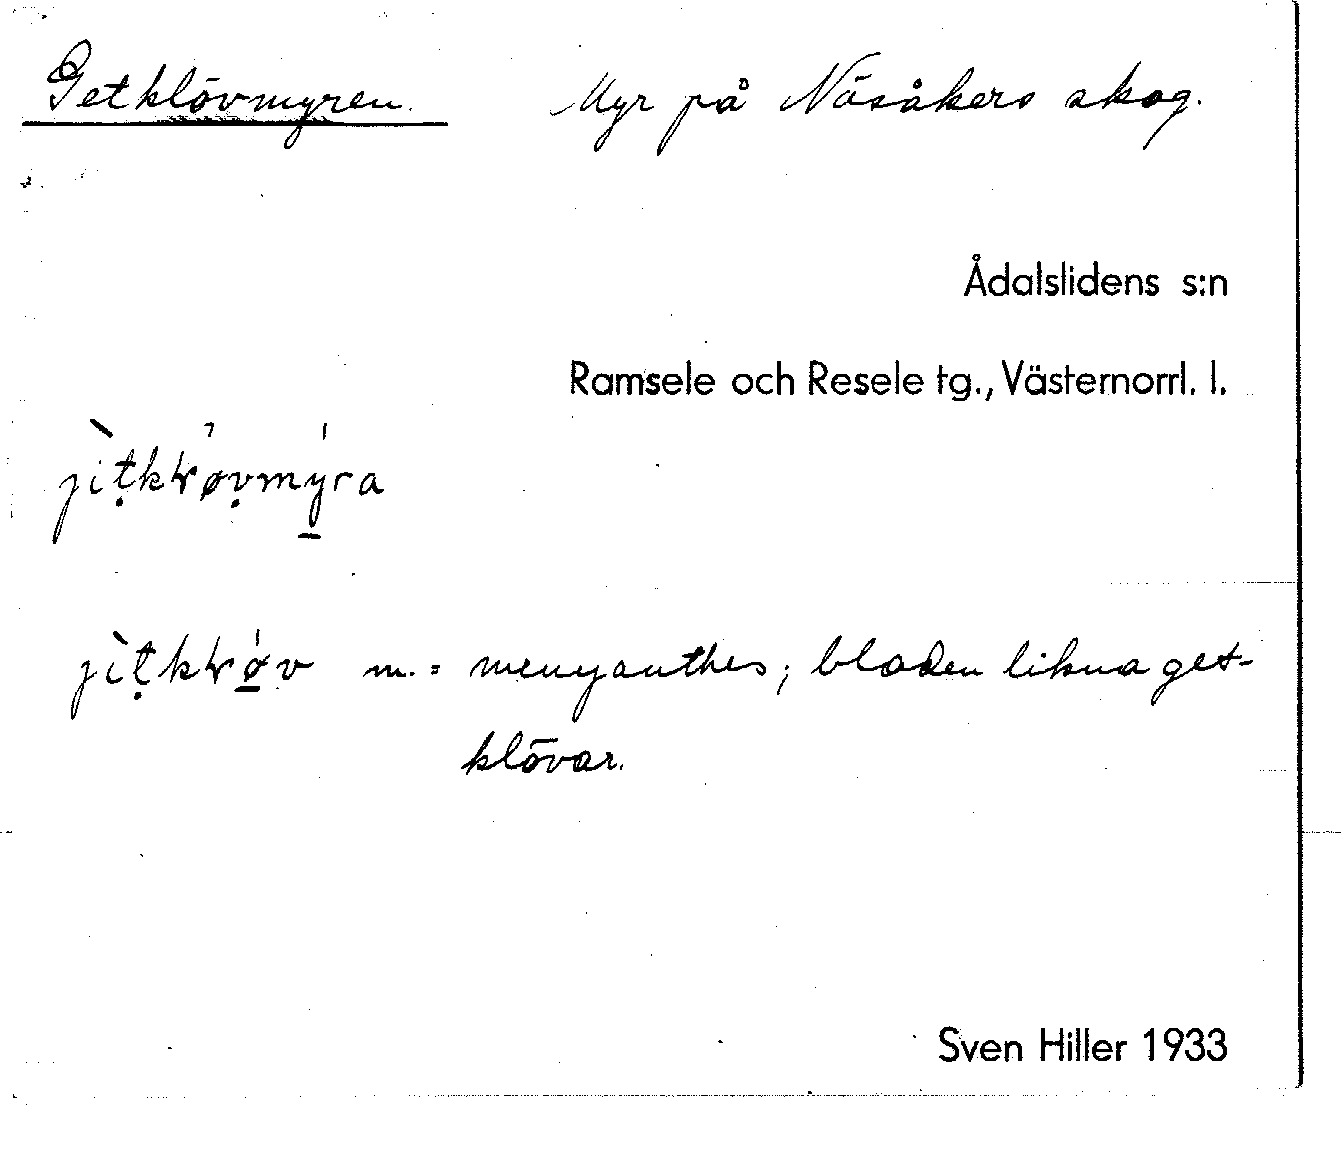 Getklövmyren. Myr på Näsåkers skog.
Ådalslidens s:n
Ramsele och Resele tg., Västernorrl. l.
jìṭkꞎøṿmýra
jìṭkꞎǿv m. = menyanthes; bladen likna get-
klövar.
Sven Hiller 1933